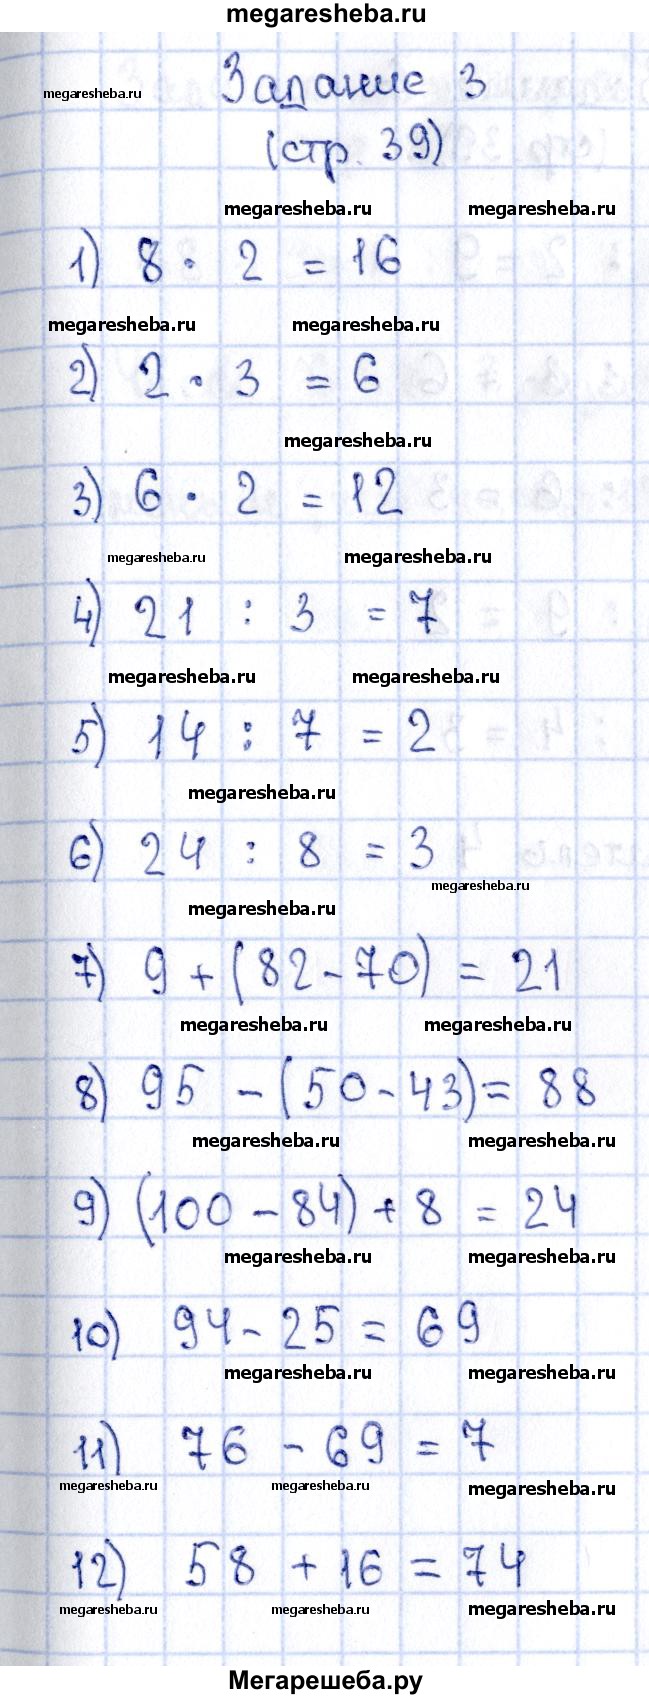 megaresheba.ru
Задание 3
megaresheba.ru
(стр. 39)
megaresheba.ru megaresheba.ru
1) 8 · 2 = 16
megaresheba.ru megaresheba.ru
2) 2 · 3 = 6
megaresheba.ru
3) 6 · 2 = 12
megaresheba.ru megaresheba.ru
4) 21 : 3 = 7
megaresheba.ru megaresheba.ru
5) 14 : 7 = 2
megaresheba.ru
6) 24 : 8 = 3
megaresheba.ru
megaresheba.ru
7) 9 + (82 - 70) = 21
megaresheba.ru megaresheba.ru
8) 95 - (50 - 43) = 88
megaresheba.ru megaresheba.ru
9) (100 - 84) + 8 = 24
megaresheba.ru megaresheba.ru
10) 94 - 25 = 69
megaresheba.ru megaresheba.ru
11) 76 - 69 = 7
megaresheba.ru megaresheba.ru megaresheba.ru
12) 58 + 16 = 74
megaresheba.ru megaresheba.ru megaresheba.ru
Мегарешеба.ру